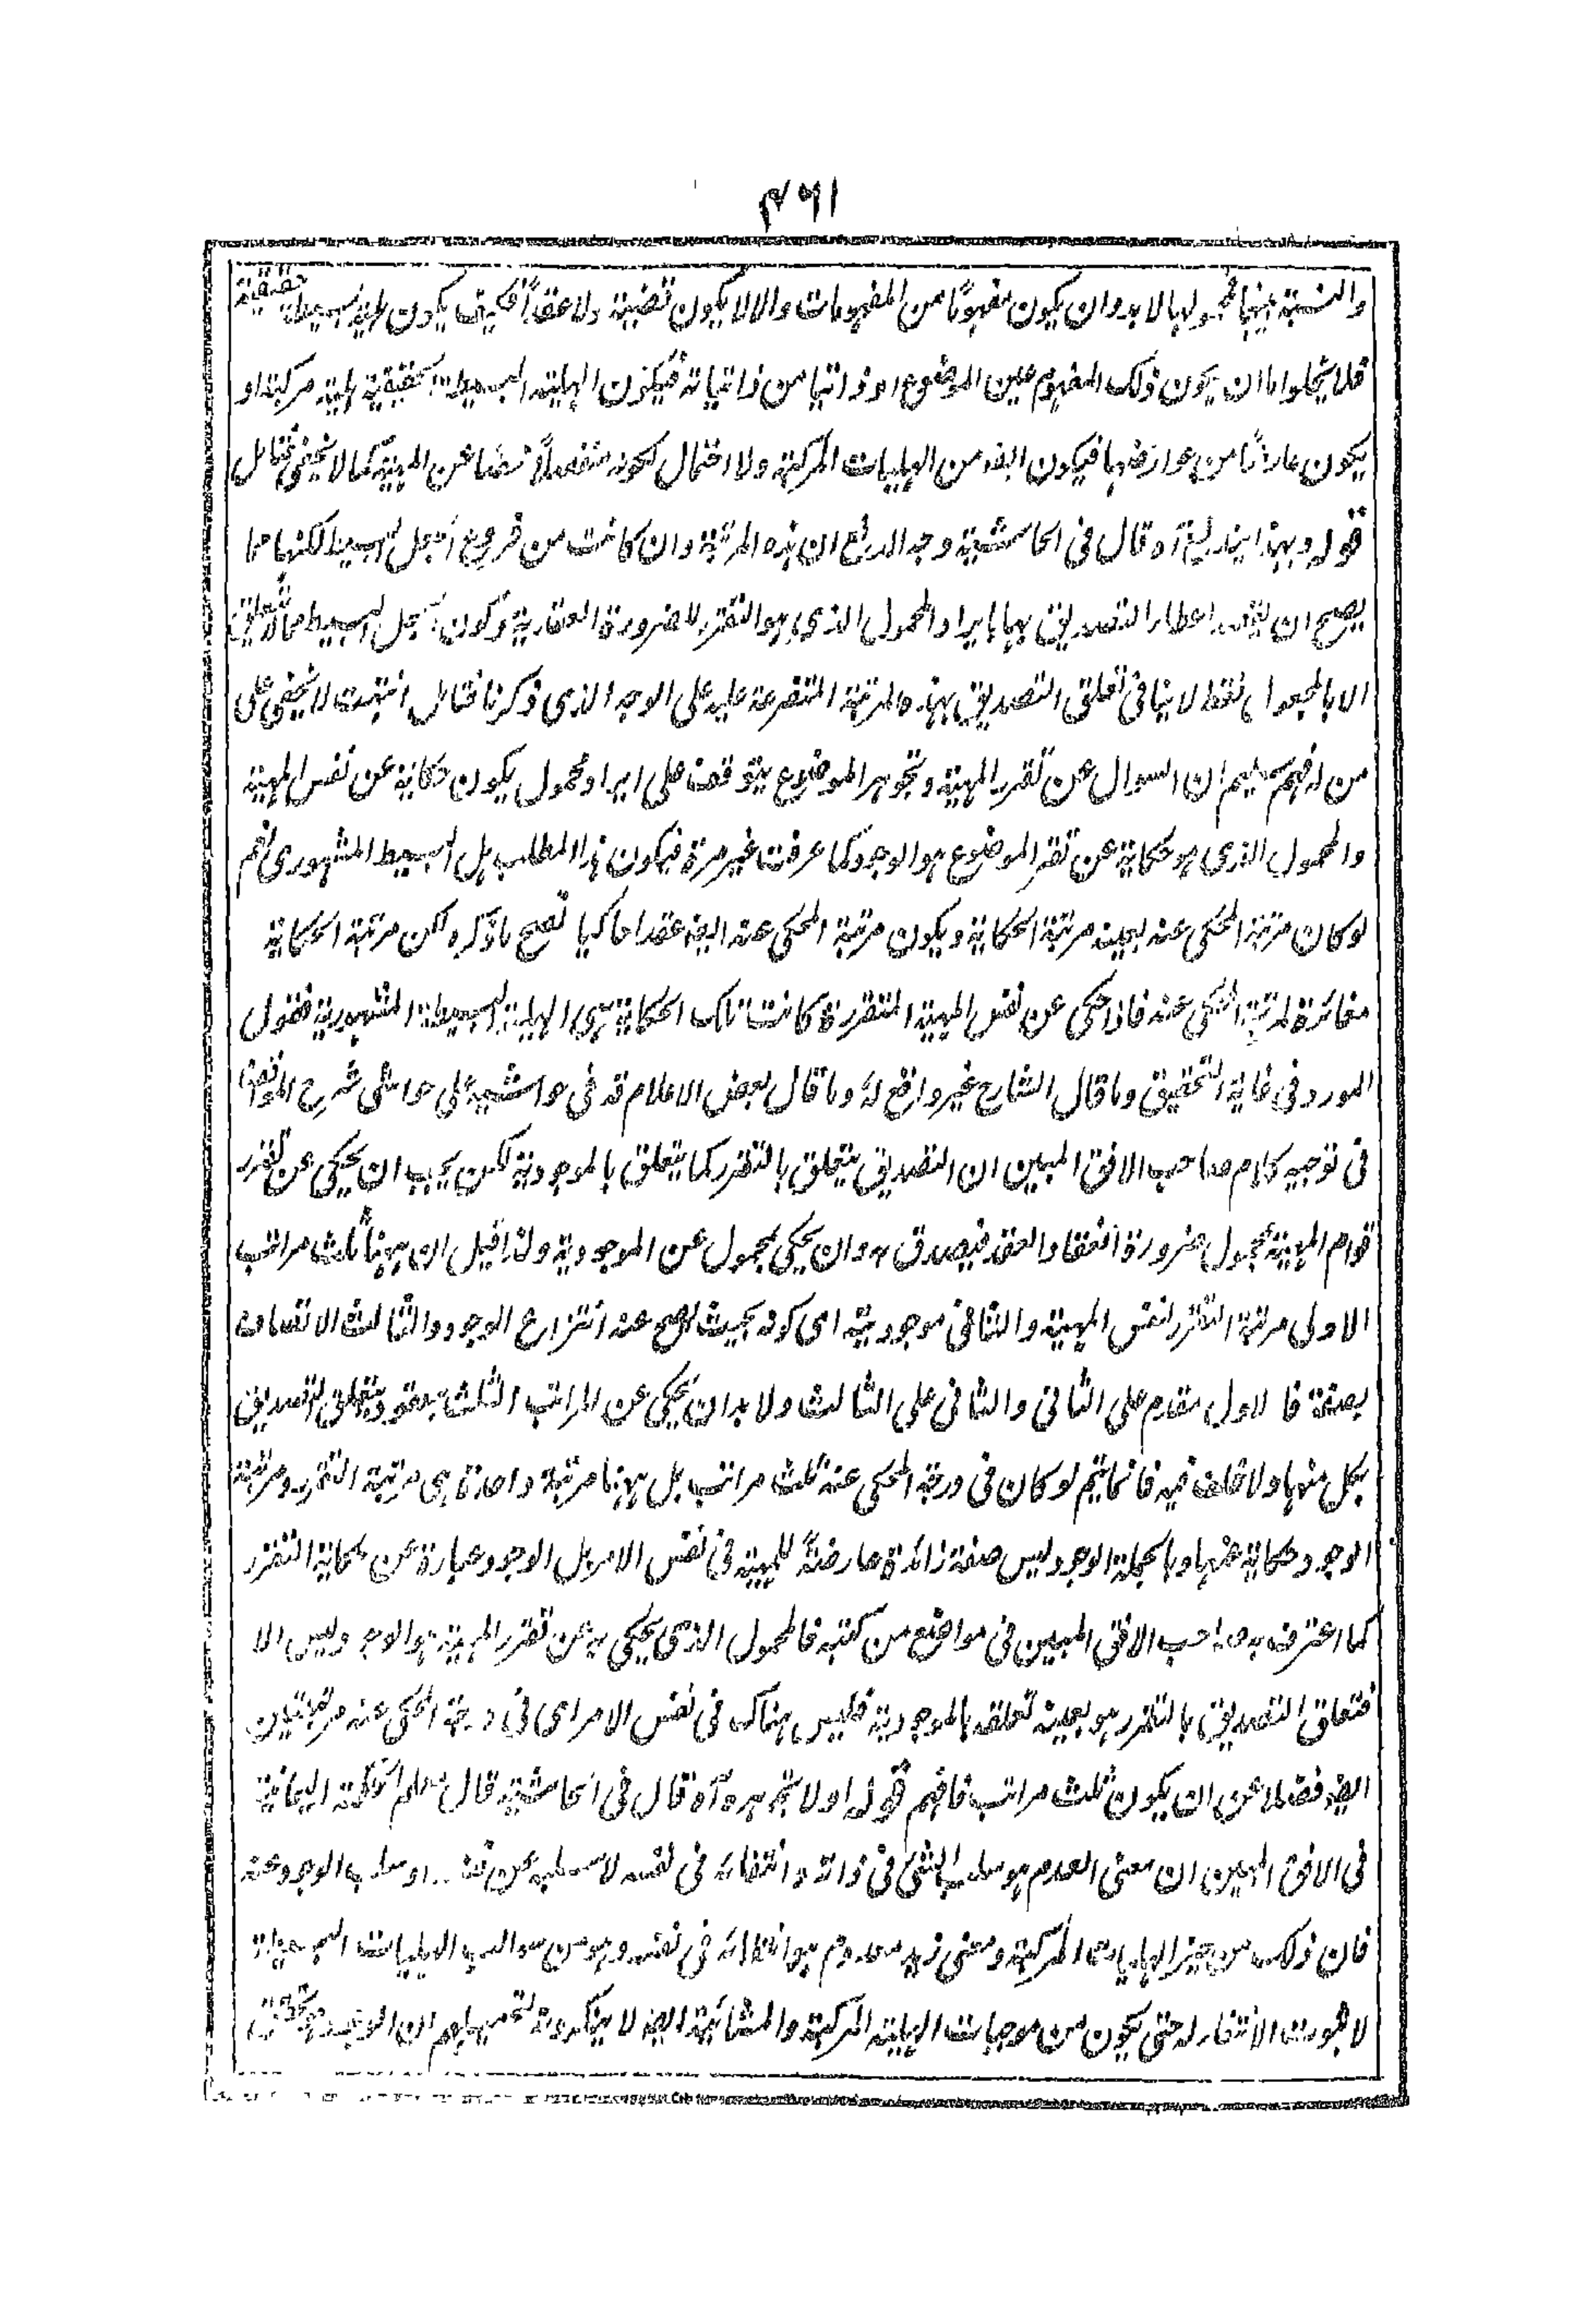 ۴۶۱
والنسبة بينهما فمحمولها لابد وان يكون مفهومًا من المفهومات والا لا يكون قضية ولا عقدًا فكيف يكون هلية بسيطة حقيقية
فلا يخلو اما ان يكون ذلك المفهوم عين الموضوع او ذاتيا من ذاتياته فيكون الهلية البسيطة الحقيقية هلية مركبة او
يكون عارضًا من عوارضها فيكون ايضًا من الهليات المركبة ولا احتمال لكونه منفصلاً محضًا عن المهية كما لا يخفى فتامل
قوله وبهذا يندفع آه قال في الحاشية وجه الدفع ان هذه المرتبة وان كانت من فروع الجعل البسيط لكنها مما
يصح ان يقصد اعطاء التصديق بها بايراد المحمول الذي هو التقرر لضرورة العقدية وكون الجعل البسيط مما لا يتعلق
الا بالمجعول فقط لا ينافي تعلق التصديق بهذه المرتبة المتفرعة عليه على الوجه الذي ذكرنا فتامل انتهت لا يخفى على
من له فهم سليم ان السوال عن تقرر المهية وتجوهر الموضوع يتوقف على ايراد محمول يكون حكاية عن نفس المهية
والمحمول الذي هو حكاية عن تقرر الموضوع هو الوجود كما عرفت غير مرة فيكون هذا المطلب هل البسيط المشهوري نعم
لو كان مرتبة المحكى عنه بعينه مرتبة الحكاية ويكون مرتبة المحكى عنه ايضا عقدا حاكيا لصح ما ذكره لكن مرتبة الحكاية
مغائرة لمرتبة المحكى عنه فاذا حكى عن نفس المهية المتقررة كانت تلك الحكاية هى الهلية البسيطة المشهورية فقول
المورد في غاية التحقيق وما قال الشارح غير دافع له وما قال بعض الاعلام قد في حواشيه على حواشى شرح المواقف
في توجيه كلام صاحب الافق المبين ان التصديق يتعلق بالتقرر كما يتعلق بالموجودية لكن يجب ان يحكى عن تقرر
قوام المهية بمحمول ضرورة انعقاد العقد فيصدق به وان يحكى بمحمول عن الموجودية ولذا قيل ان ههنا ثلث مراتب
الاولى مرتبة التقرر لنفس المهية والثاني موجوديته اى كونه بحيث يصح عنه انتزاع الوجود والثالث الاتصاف
بصفة فالاول مقدم على الثاني والثاني على الثالث ولابد ان يحكى عن المراتب الثلث بعقود يتعلق التصديق
بكل منها ولا خلف فيه فانما يتم لو كان في درجة المحكى عنه ثلث مراتب بل ههنا مرتبة واحدة هى مرتبة التقرر ومرتبة
الوجود حكاية عنها وبالجملة الوجود ليس صفة زائدة عارضة للمهية في نفس الامر بل الوجود عبارة عن حكاية التقرر
كما اعترف به صاحب الافق المبين في مواضع من كتبه فالمحمول الذي يحكى به عن تقرر المهية هو الوجود وليس الا
فتعلق التصديق بالتقرر هو بعينه تعلقه بالموجودية فليس هناك في نفس الامر اى في درجة المحكى عنه مرتبتين
ايضا فضلا عن ان يكون ثلث مراتب فافهم قوله او لا بتجوهره آه قال في الحاشية قال معلم الحكمة اليمانية
في الافق المبين ان معنى العدم هو سلب الشئ في ذاته وانتفائه في نفسه لا سلبه عن او سلب الوجود عنه
فان ذلك من حيز الهليات المركبة ومعنى زيد معدوم هو انتفائه في نفسه وهو من سوالب الهليات البسيطة
لا ثبوت الانتفاء له حتى يكون من موجبات الهلية المركبة والمشائية ايضا لا ينكرونه ان الوجود